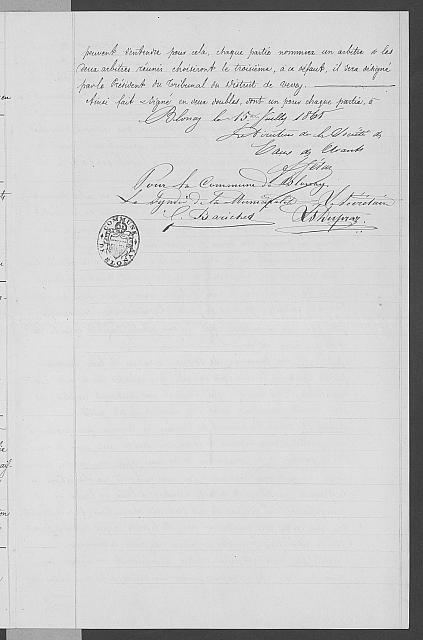 peuvent s'entendre pour cela, chaque partie nommera un arbitre & les
deux arbitres réunis choisiront le troisième, à ce défaut, il sera désigné
par le Président du Tribunal du District de Vevey.
Ainsi fait & signé en deux doubles, dont un pour chaque partie, à
Blonay le 15 Juillet 186
Le Directeur de la Société des
Eaux de
Pour la Commune de Blonay.
Le Syndic de la Municipalité Secrétaire
COMMUNE